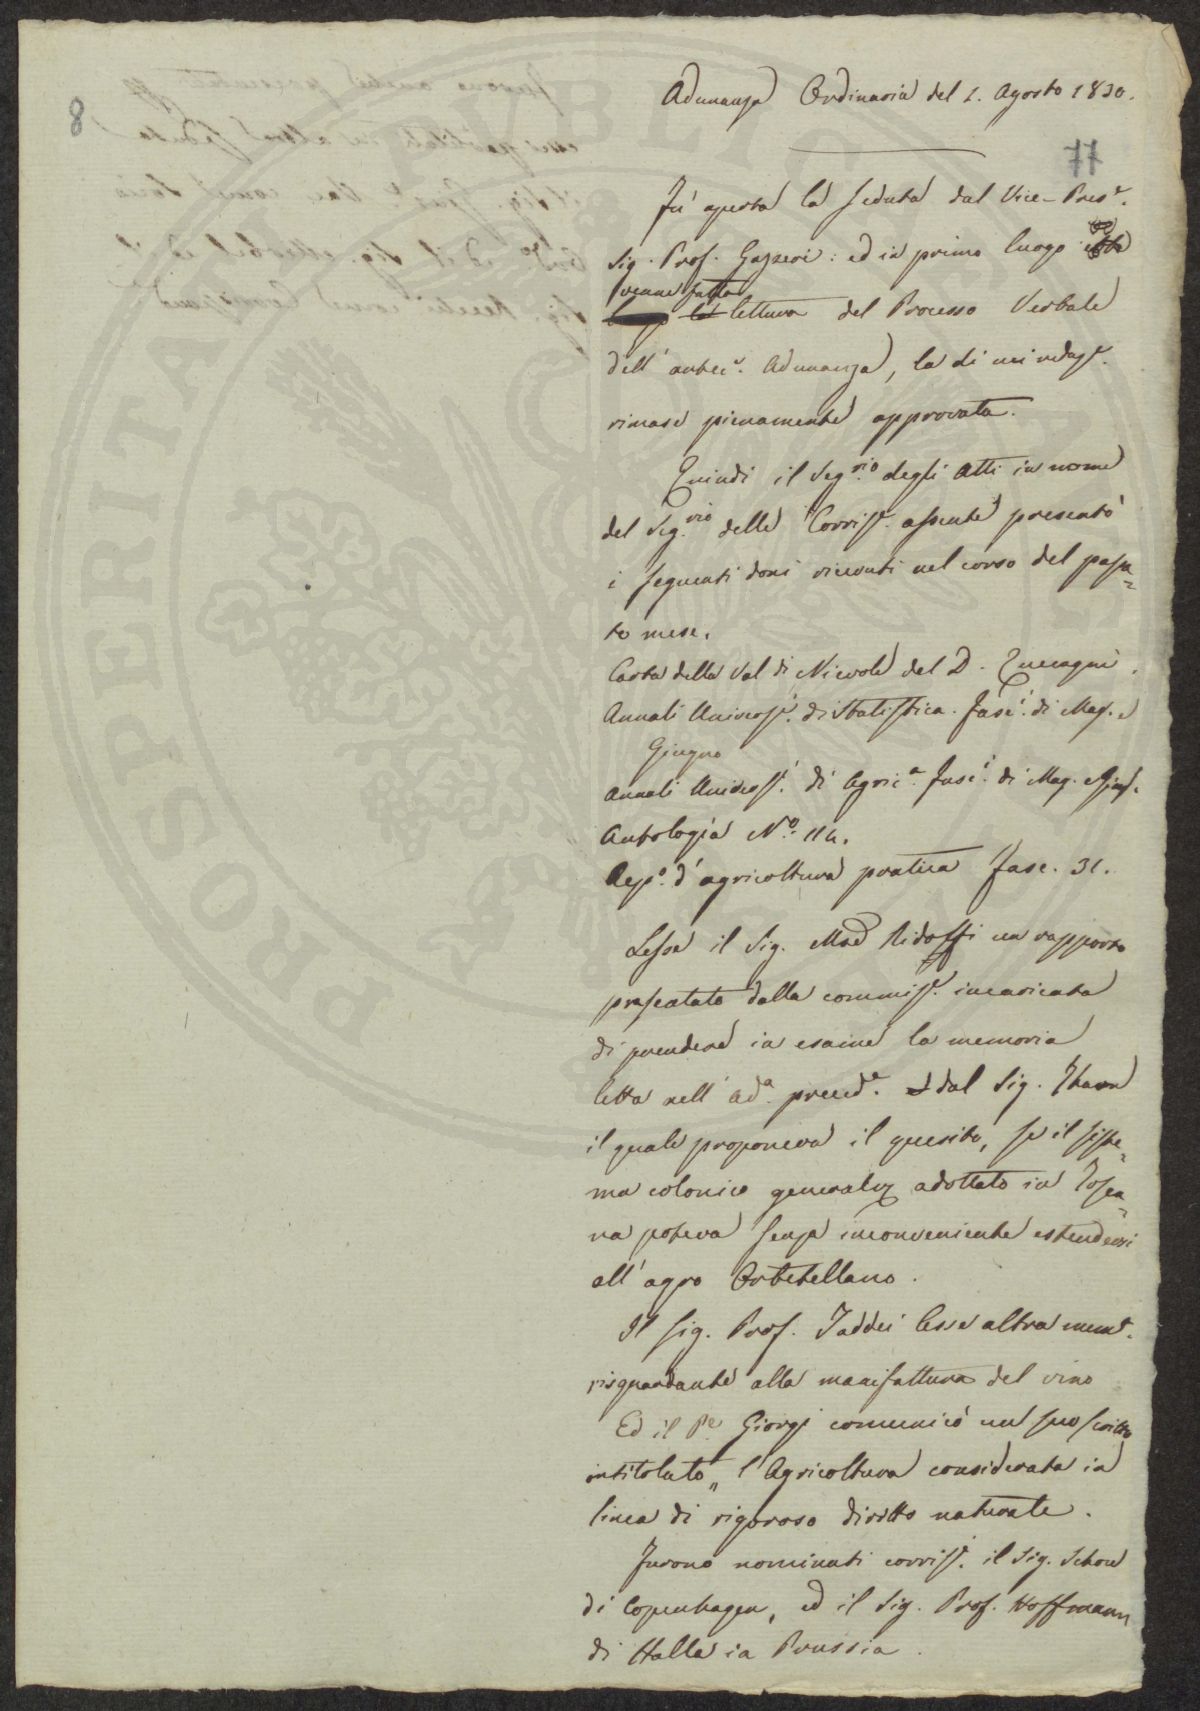 8
Adunanza Ordinaria del 1. Agosto 1830.
77
Fu aperta la seduta dal Vice-Pres.e
Sig. Prof. Gazzeri: ed in primo luogo
venne fatta
lettura del Processo Verbale
dell' antec.e Adunanza, la di cui redaz.e
rimase pienamente approvata.
Quindi il Seg.rio degli Atti in nome
del Seg.rio delle Corrisp.e assente presentò
i seguenti doni ricevuti nel corso del passa=
to mese.
Carta della Val di Nievole del D. Zuccagni.
Annali Univers.i di Statistica. Fasc.i di Mag. e
Giugno
Annali Univers.i di Agric.a Fasc.i di Mag. e Giug.
Antologia N.o 114.
Rep.o d'agricoltura pratica fasc. 31.
Lesse il Sig. Mse Ridolfi un rapporto
presentato dalla commiss.e incaricata
di prendere in esame la memoria
letta nell' ad.a preced.e dal Sig. Thaon
il quale proponeva il quesito, se il siste=
ma colonico generalm. adottato in Tosca=
na poteva senza inconveniente estendersi
all' agro Orbetellano.
Il Sig. Prof. Taddei lesse altra mem.a
risguardante alla manifattura del vino
Ed il P.e Giorgi comunicò un suo scritto
intitolato „ l'Agricoltura considerata in
linea di rigoroso diritto naturale.
Furono nominati corrisp.i il Sig. Schow
di Copenhagen, ed il Sig. Prof. Hoffmann
di Halla in Prussia.
PROSPERITA PUBLICA